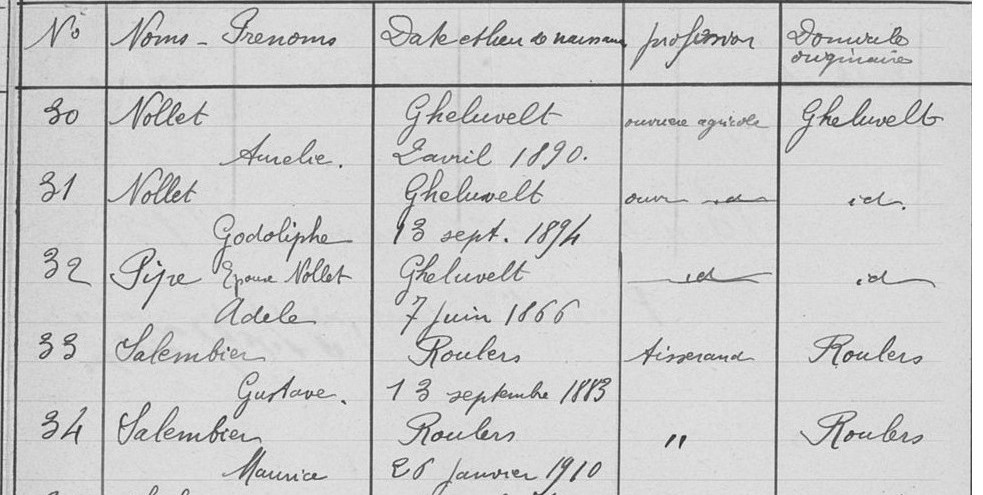 No Noms - Prenoms Date et lieu de naissance profession Domicile
originaires
30 Nollet Gheluvelt ouvriere agricole Gheluvelt
Aurelie. 2 avril 1890.
31 Nollet Gheluvelt ouvr id id.
Godoliphe 13 sept. 1894
32 Pype Epouse Nollet Gheluvelt id id
Adele 7 Juin 1866
33 Salembier Roulers tisserand Roulers
Gustave. 13 septembre 1883
34 Salembier Roulers " Roulers
Maurice 26 Janvier 1910